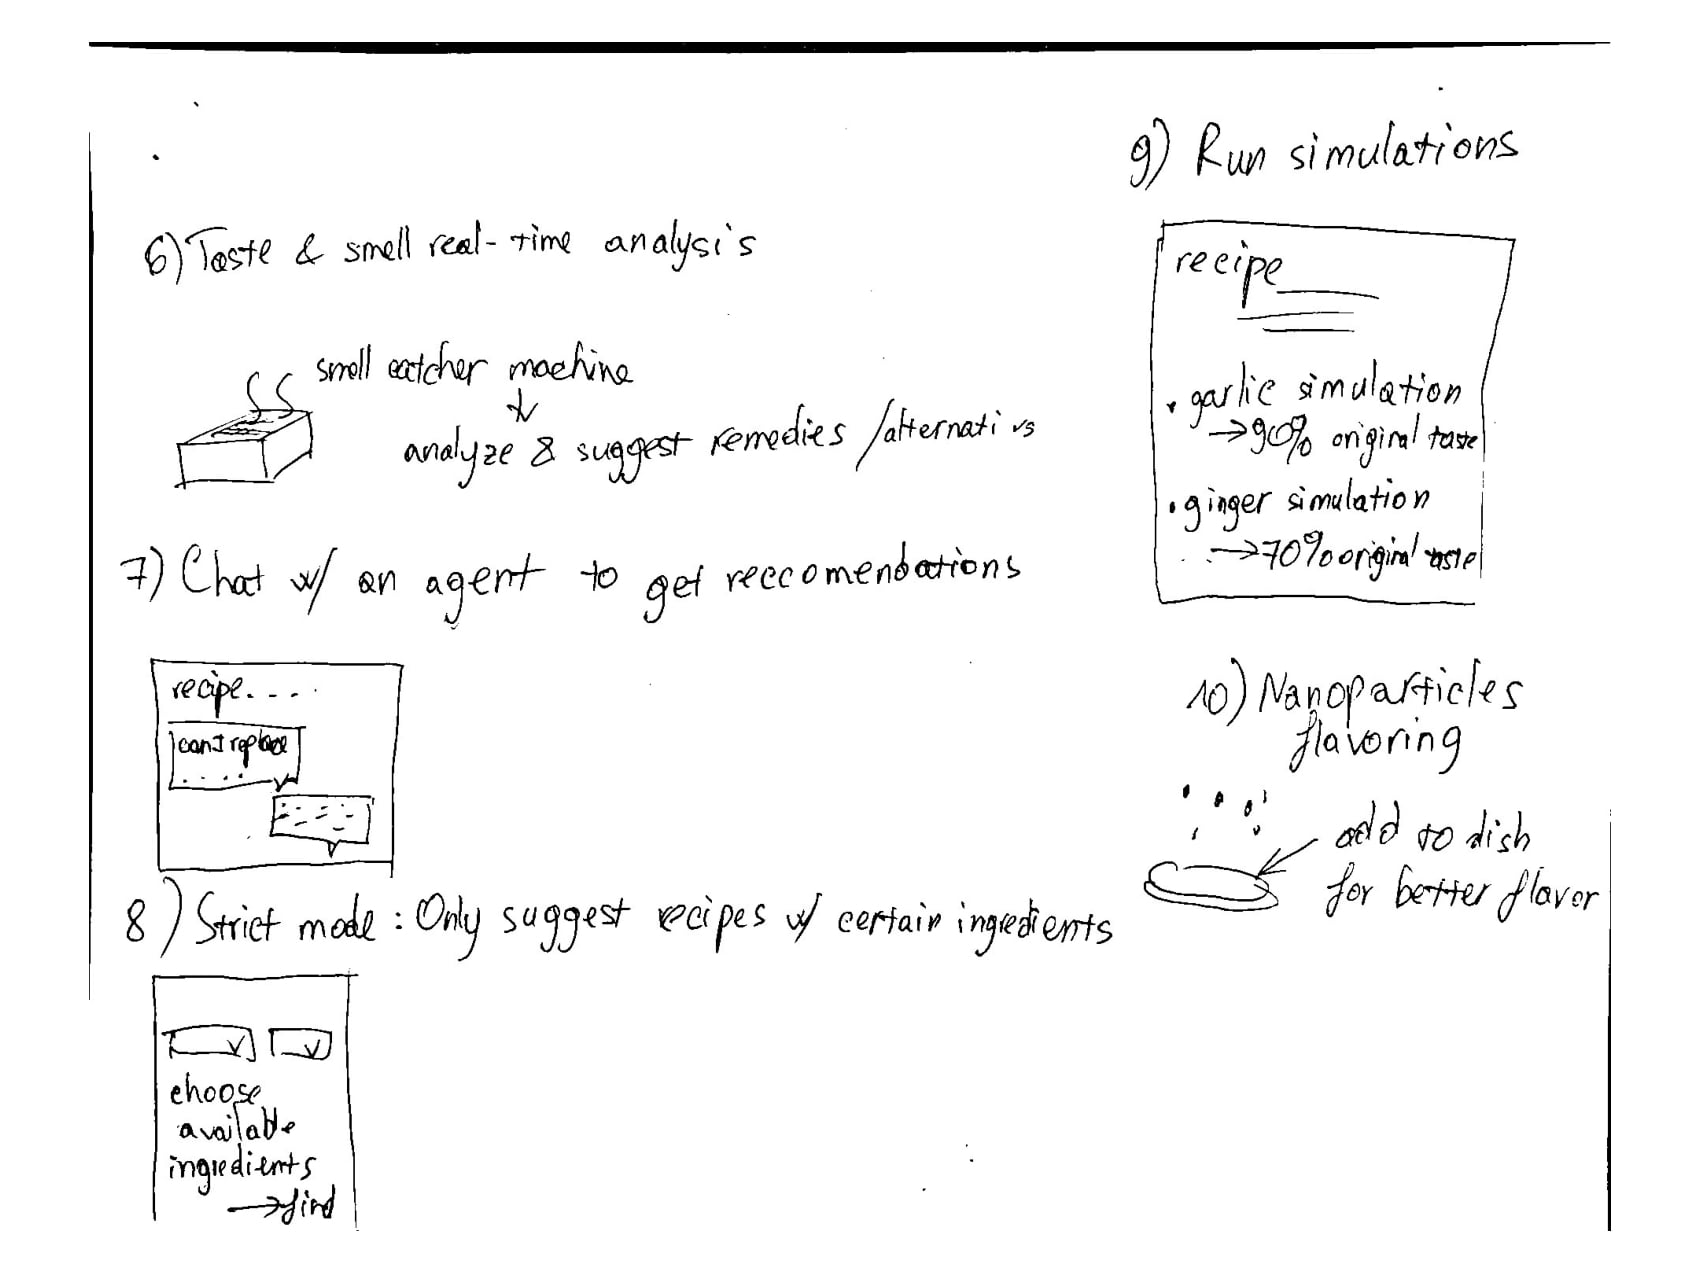 6) Taste & smell real-time analysis
smell catcher machine
analyze & suggest remedies / alternativs
7) Chat w/ an agent to get reccomendations
recipe....
can I replace
.....
8) Strict mode: Only suggest recipes w/ certain ingredients
choose
available
ingredients
→ find
9) Run simulations
recipe
• garlic simulation
→ 90% original taste
• ginger simulation
→ 70% original taste
10) Nanoparticles
flavoring
add to dish
for better flavor